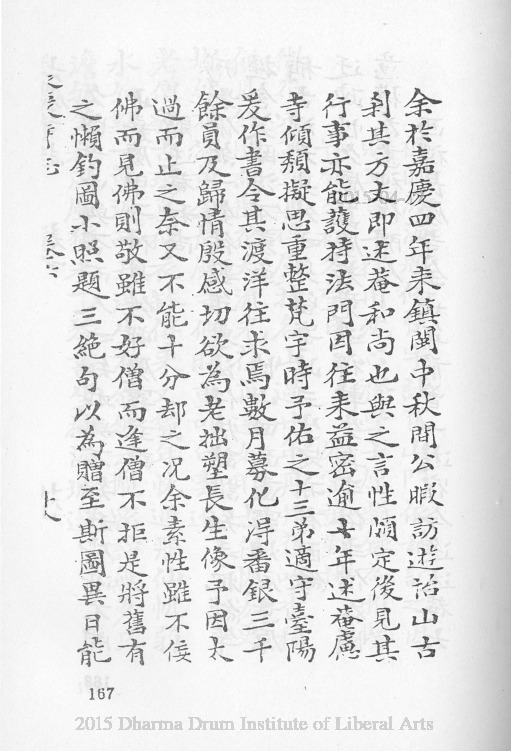 余於嘉慶四年来鎮閩中秋間公暇訪遊詒山古
刹其方丈即述菴和尚也與之言性頗定後見其
行事亦能護持法門因往来益密逾七年述菴慮
寺傾頹擬思重整梵宇時予佑之十三弟適守臺陽
爰作書令其渡洋往求焉數月募化淂番銀三千
餘員及歸情殷感切欲為老拙塑長生像予因太
過而止之奈又不能十分却之况余素性雖不佞
佛而見佛則敬雖不好僧而逢僧不拒是將舊有
之懶釣圖小照題三絶句以為贈至斯圖異日能
167
2015 Dharma Drum Institute of Liberal Arts